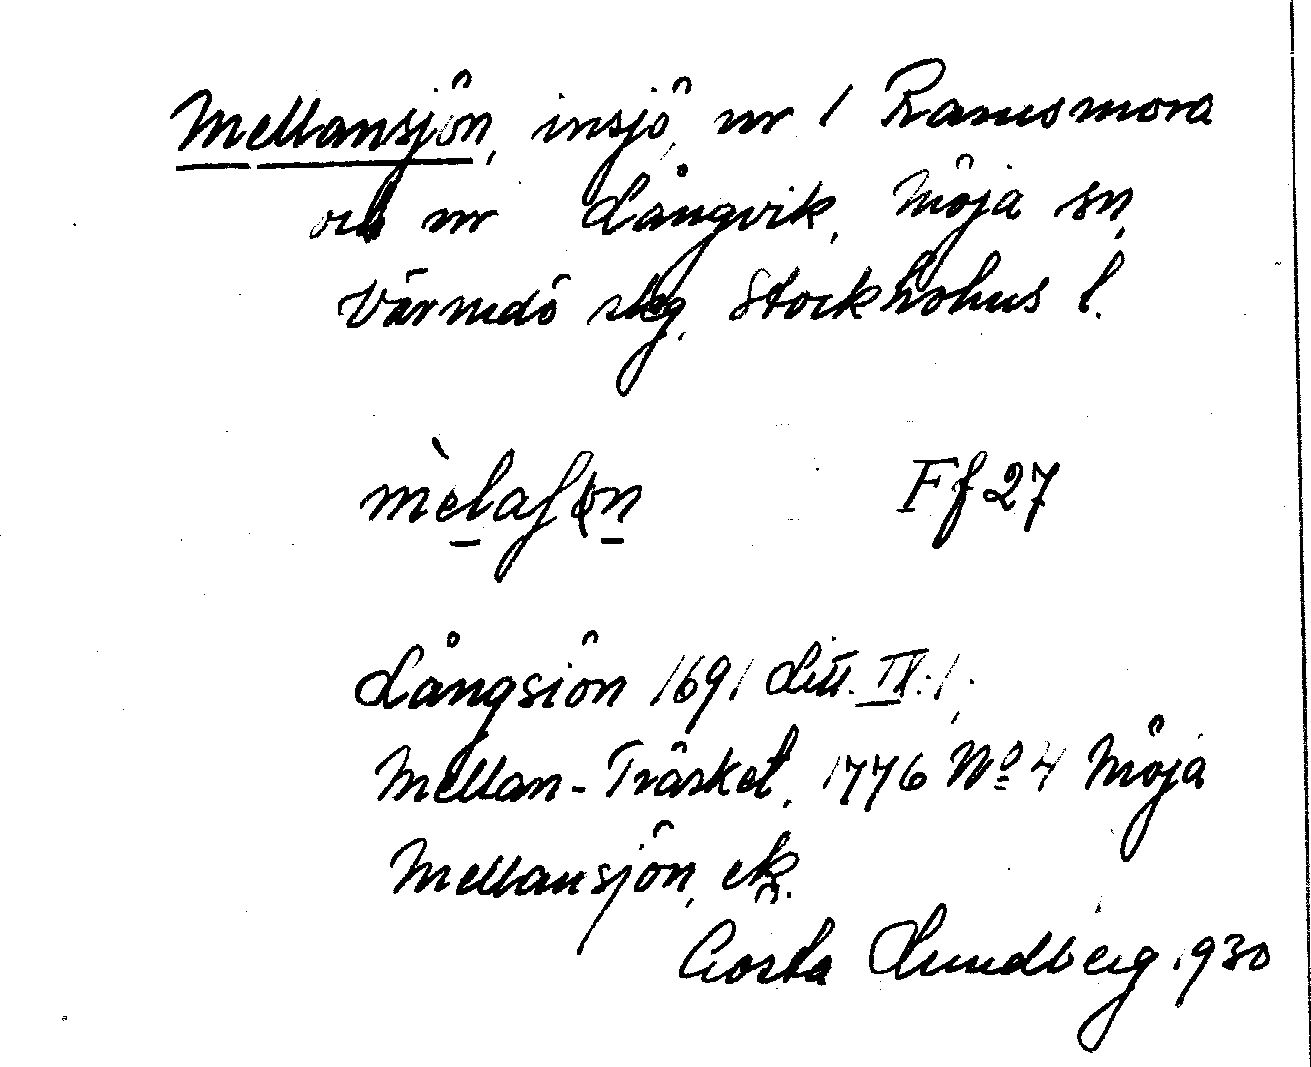 Mellansjön, insjö, nr 1 Ramsmora
och nr Långvik, Möja sn,
Värmdö skg, Stockholms l.
mèlaʃøn Ff 27
Långsiön 1691 Litt. IX:1,
Mellan-Träsket, 1776 No 4 Möja
Mellansjön, ek.
Gösta Lundberg 1930